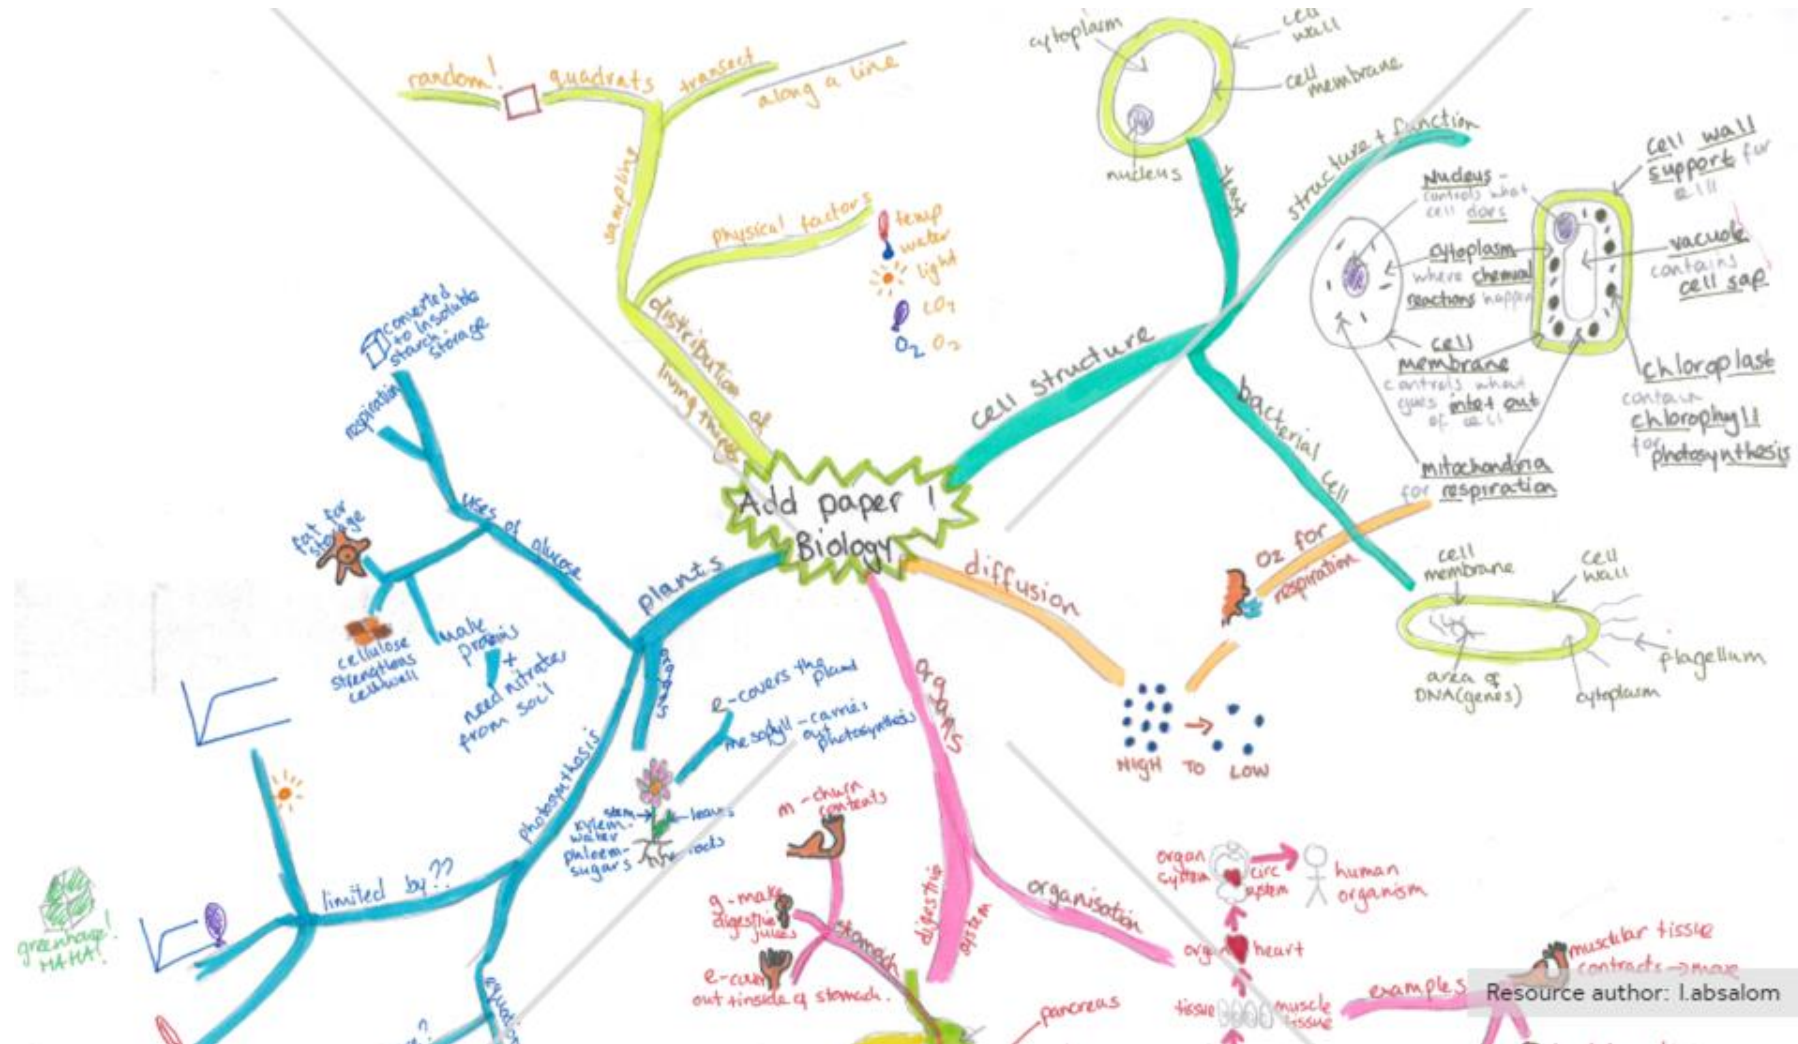 random!
quadrats
transect
along a line
sampling
physical factors
temp
water
light
O₂ O₂
distribution of
living things
cytoplasm
cell
wall
cell
membrane
nucleus
yeast
structure + function
cell structure
bacterial cell
Nucleus -
controls what
cell does
cytoplasm
where chemical
reactions happen
cell
membrane
controls what
goes in + out
of cell
mitochondria
for respiration
cell wall
support for
cell
vacuole
contains
cell sap
chloroplast
contain
chlorophyll
for
photosynthesis
cell
membrane
cell
wall
flagellum
area of
DNA(genes)
cytoplasm
Add paper 1
Biology
diffusion
O2 for
respiration
HIGH TO LOW
plants
uses of glucose
respiration
converted
to insoluble
starch
storage
fat for
storage
cellulose
strengthens
cell wall
make
proteins
+
need nitrates
from soil
organs
e-covers the
plant
mesophyll-carries
out
photosynthesis
stem
xylem-
water
phloem-
sugars
leaves
roots
photosynthesis
limited by??
greenhouse!
HAHA!
equation
organs
digestive
system
m-churn
contents
g-make
digestive
juices
stomach
e-cover
out + inside of stomach.
pancreas
organisation
organ
system
circ
system
human
organism
organ
heart
tissue
muscle
tissue
examples
muscular tissue
contracts → move
Resource author: l.absalom